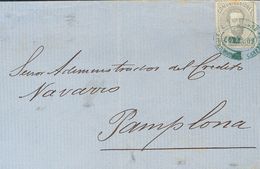 Señor Administrador del Credito
Navarro
Pamplona